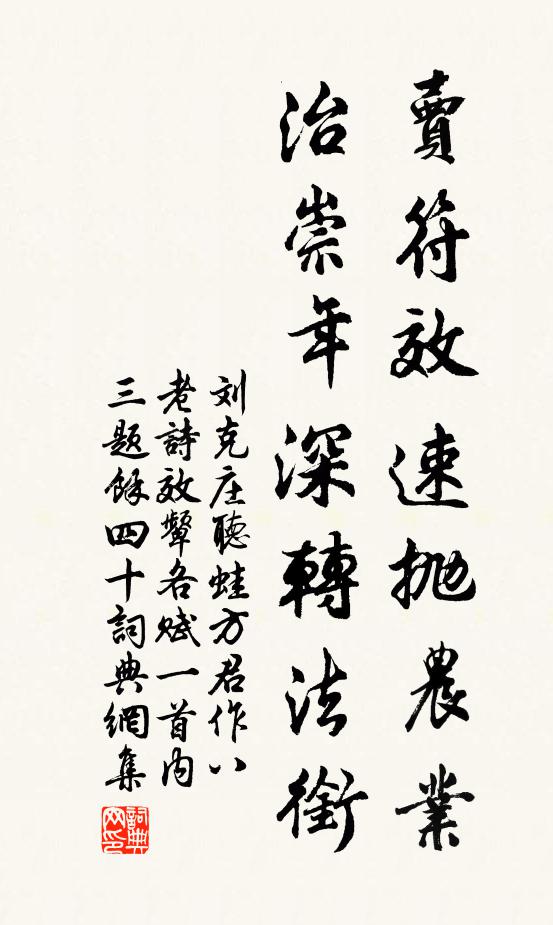 賣符效速抛農業
治崇年深轉法銜
刘克庄聽蛙方君作八
老詩效顰各赋一首内
三題餘四十詞典網集
詞典
网印